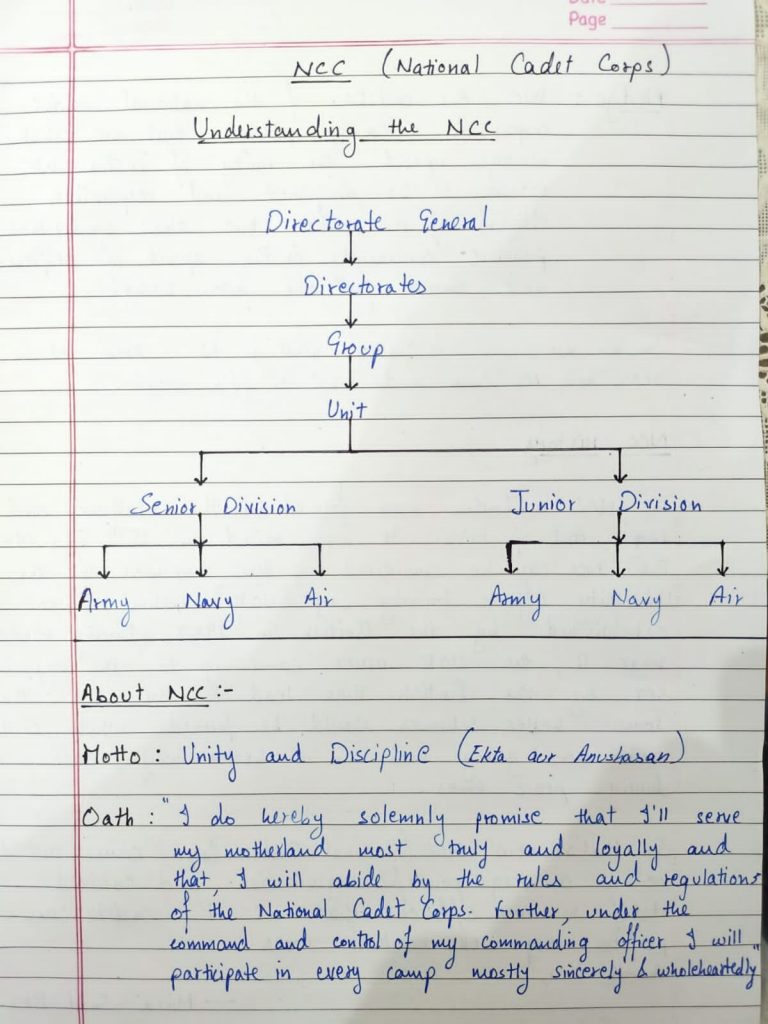 Date
Page
NCC (National Cadet Corps)
Understanding the NCC
Directorate General
Directorates
Group
Unit
Senior Division Junior Division
Army Navy Air Army Navy Air
About NCC :-
Motto : Unity and Discipline (Ekta aur Anushasan)
Oath : "I do hereby solemnly promise that I'll serve
my motherland most truly and loyally and
that, I will abide by the rules and regulations
of the National Cadet Corps. Further, under the
command and control of my commanding officer I will
participate in every camp mostly sincerely & wholeheartedly"